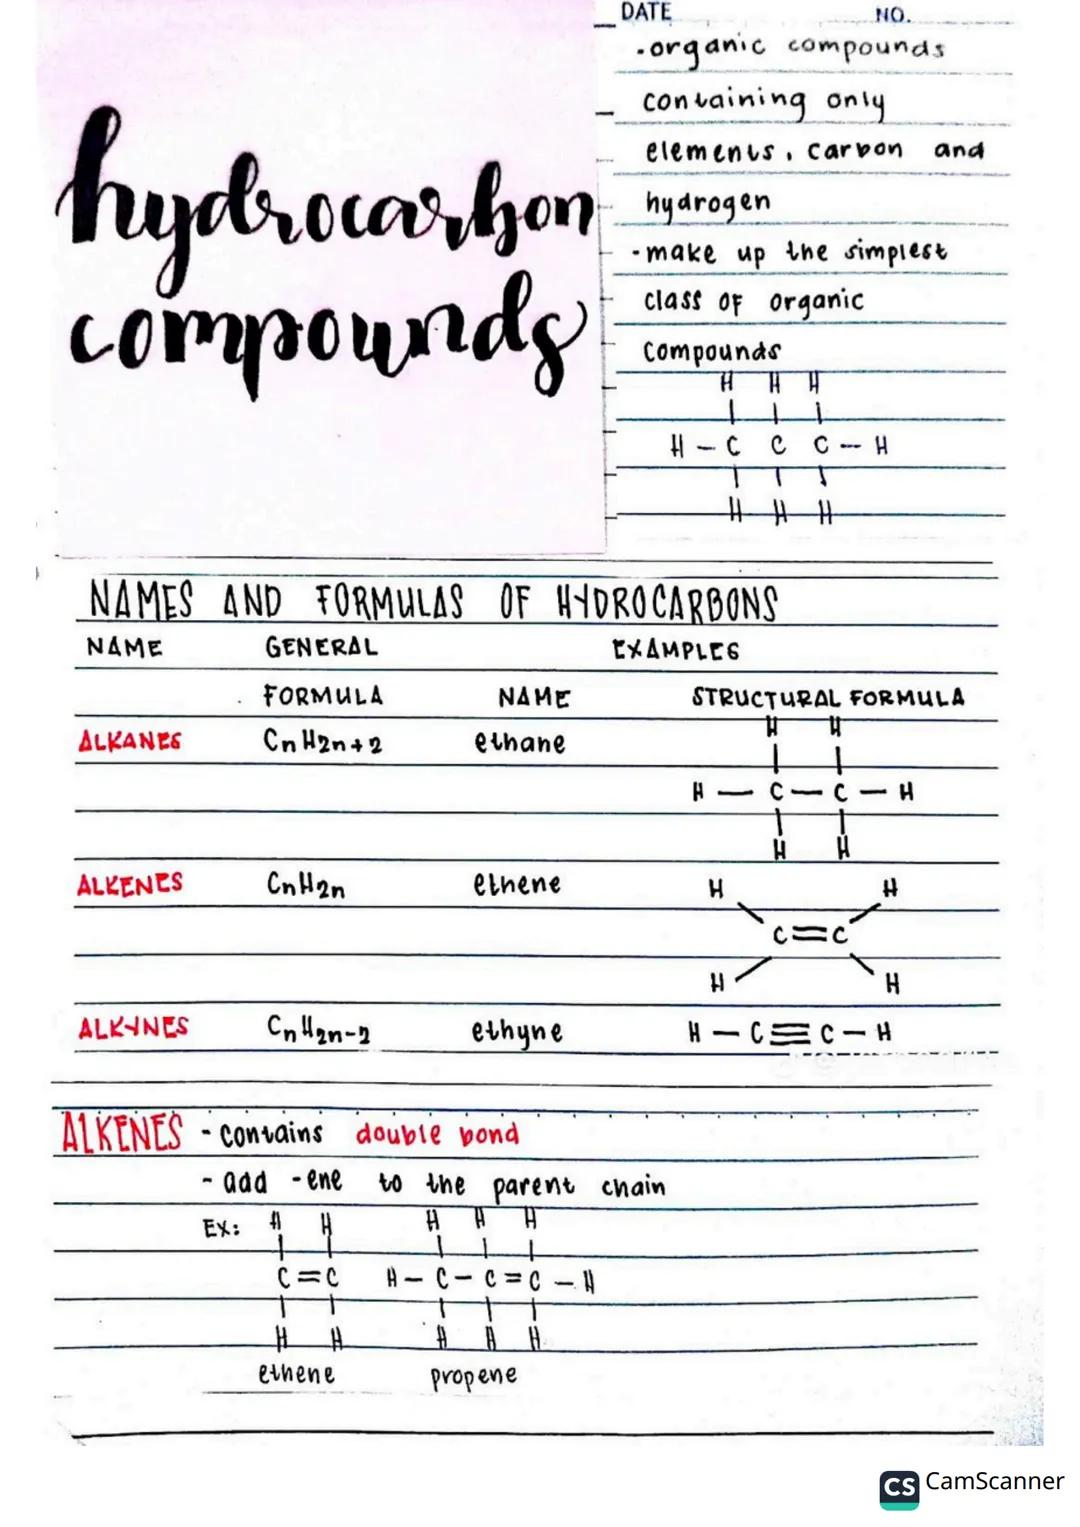 hydrocarbon
compounds
DATE NO.
• organic compounds
containing only
elements, carbon and
hydrogen
- make up the simplest
class of organic
compounds
H H H
H – C C C – H
H H H
NAMES AND FORMULAS OF HYDROCARBONS
NAME GENERAL EXAMPLES
FORMULA NAME STRUCTURAL FORMULA
H H
ALKANES CnH2n+2 ethane
H — C — C — H
H H
ALKENES CnH2n ethene H H
C=C
H H
ALKYNES CnH2n-2 ethyne H — C≡C — H
ALKENES - contains double bond
- add -ene to the parent chain
Ex: H H H H H
C=C H – C – C = C – H
H H H H H
ethene propene
CS CamScanner